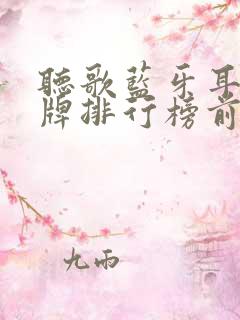 聽歌藍牙耳
牌排行榜前
九雨